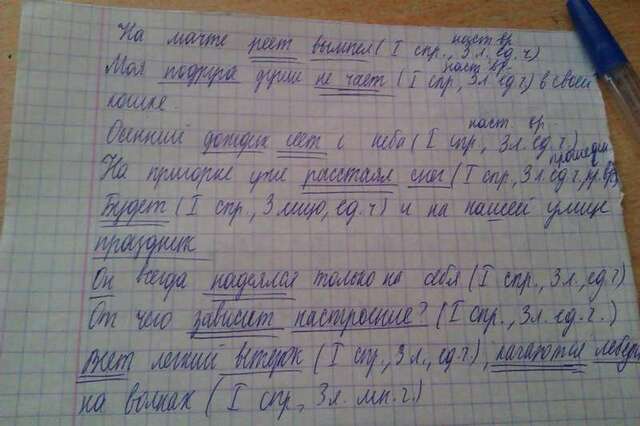 наст. вр.
На мачте реет вымпел (I спр., 3 л. ед. ч)
наст. вр.
Моя подруга души не чает (I спр., 3 л. ед. ч) в своей
кошке.
наст. вр.
Осенний дождик сеет с неба (I спр., 3 л. ед. ч)
прошедш.
На пригорке уже растаял снег (I спр., 3 л. ед. ч, пр. вр)
Будет (I спр., 3 лицо, ед. ч) и на нашей улице
праздник
Он всегда надеялся только на себя (I спр., 3 л., ед. ч)
От чего зависит настроение? (I спр., 3 л. ед. ч.)
Веет легкий ветерок (I спр., 3 л., ед. ч), качаются
на волнах (I спр., 3 л. мн. ч.)